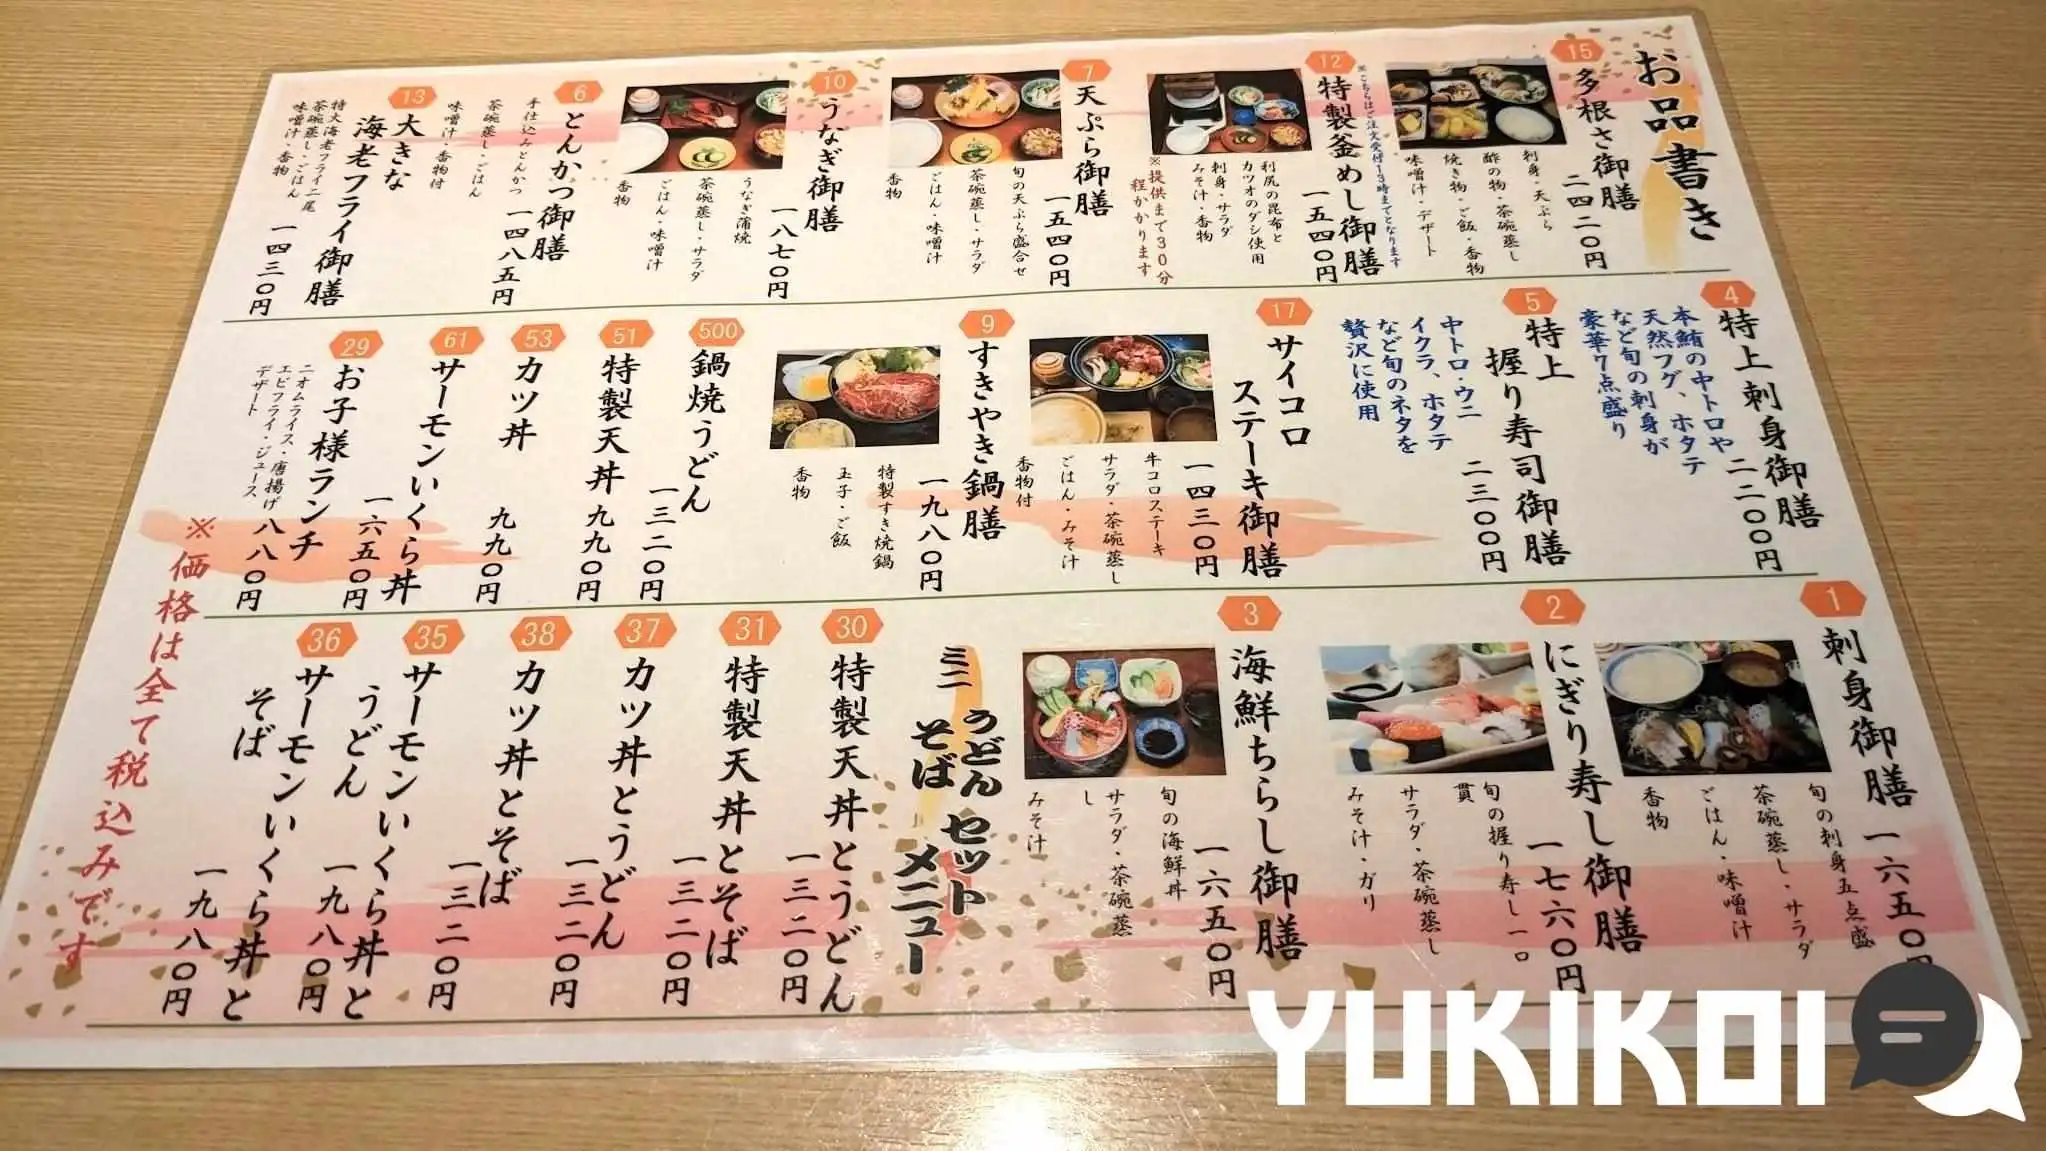 お品書き
15
多根さ御膳
二四二〇円
刺身・天ぷら
酢の物・茶碗蒸し
焼き物・ご飯・香物
味噌汁・デザート
12
※こちらはご注文受付13時までとなります
特製釜めし御膳
一五四〇円
利尻の昆布と
カツオのダシ使用
刺身・サラダ
みそ汁・香物
※提供まで30分
程かかります
7
天ぷら御膳
一五四〇円
旬の天ぷら盛合せ
茶碗蒸し・サラダ
ごはん・味噌汁
香物
10
うなぎ御膳
一八七〇円
うなぎ蒲焼
茶碗蒸し・サラダ
ごはん・味噌汁
香物
6
とんかつ御膳
一四八五円
手仕込みとんかつ
茶碗蒸し・ごはん
味噌汁・香物付
13
大きな
海老フライ御膳
一四三〇円
特大海老フライ二尾
茶碗蒸し・ごはん
味噌汁・香物
4
特上刺身御膳
二二〇〇円
本鮪の中トロや
天然フグ、ホタテ
など旬の刺身が
豪華7点盛り
5
特上
握り寿司御膳
二三〇〇円
中トロ・ウニ
イクラ、ホタテ
など旬のネタを
贅沢に使用
17
サイコロ
ステーキ御膳
一四三〇円
牛コロステーキ
サラダ・茶碗蒸し
ごはん・みそ汁
香物付
9
すきやき鍋膳
一九八〇円
特製すき焼鍋
玉子・ご飯
香物
500
鍋焼うどん
一三二〇円
51
特製天丼
九九〇円
53
カツ丼
九九〇円
61
サーモンいくら丼
一六五〇円
29
お子様ランチ
八八〇円
ミニオムライス・唐揚げ
エビフライ・ジュース
デザート
1
刺身御膳
一六五〇円
旬の刺身五点盛
茶碗蒸し・サラダ
ごはん・味噌汁
香物
2
にぎり寿し御膳
一七六〇円
旬の握り寿し一〇
貫
サラダ・茶碗蒸し
みそ汁・ガリ
3
海鮮ちらし御膳
一六五〇円
旬の海鮮丼
サラダ・茶碗蒸
し
みそ汁
ミニ うどん そば セットメニュー
30
特製天丼とうどん
一三二〇円
31
特製天丼とそば
一三二〇円
37
カツ丼とうどん
一三二〇円
38
カツ丼とそば
一三二〇円
35
サーモンいくら丼と
うどん
一九八〇円
36
サーモンいくら丼と
そば
一九八〇円
※価格は全て税込みです
YUKIKOI